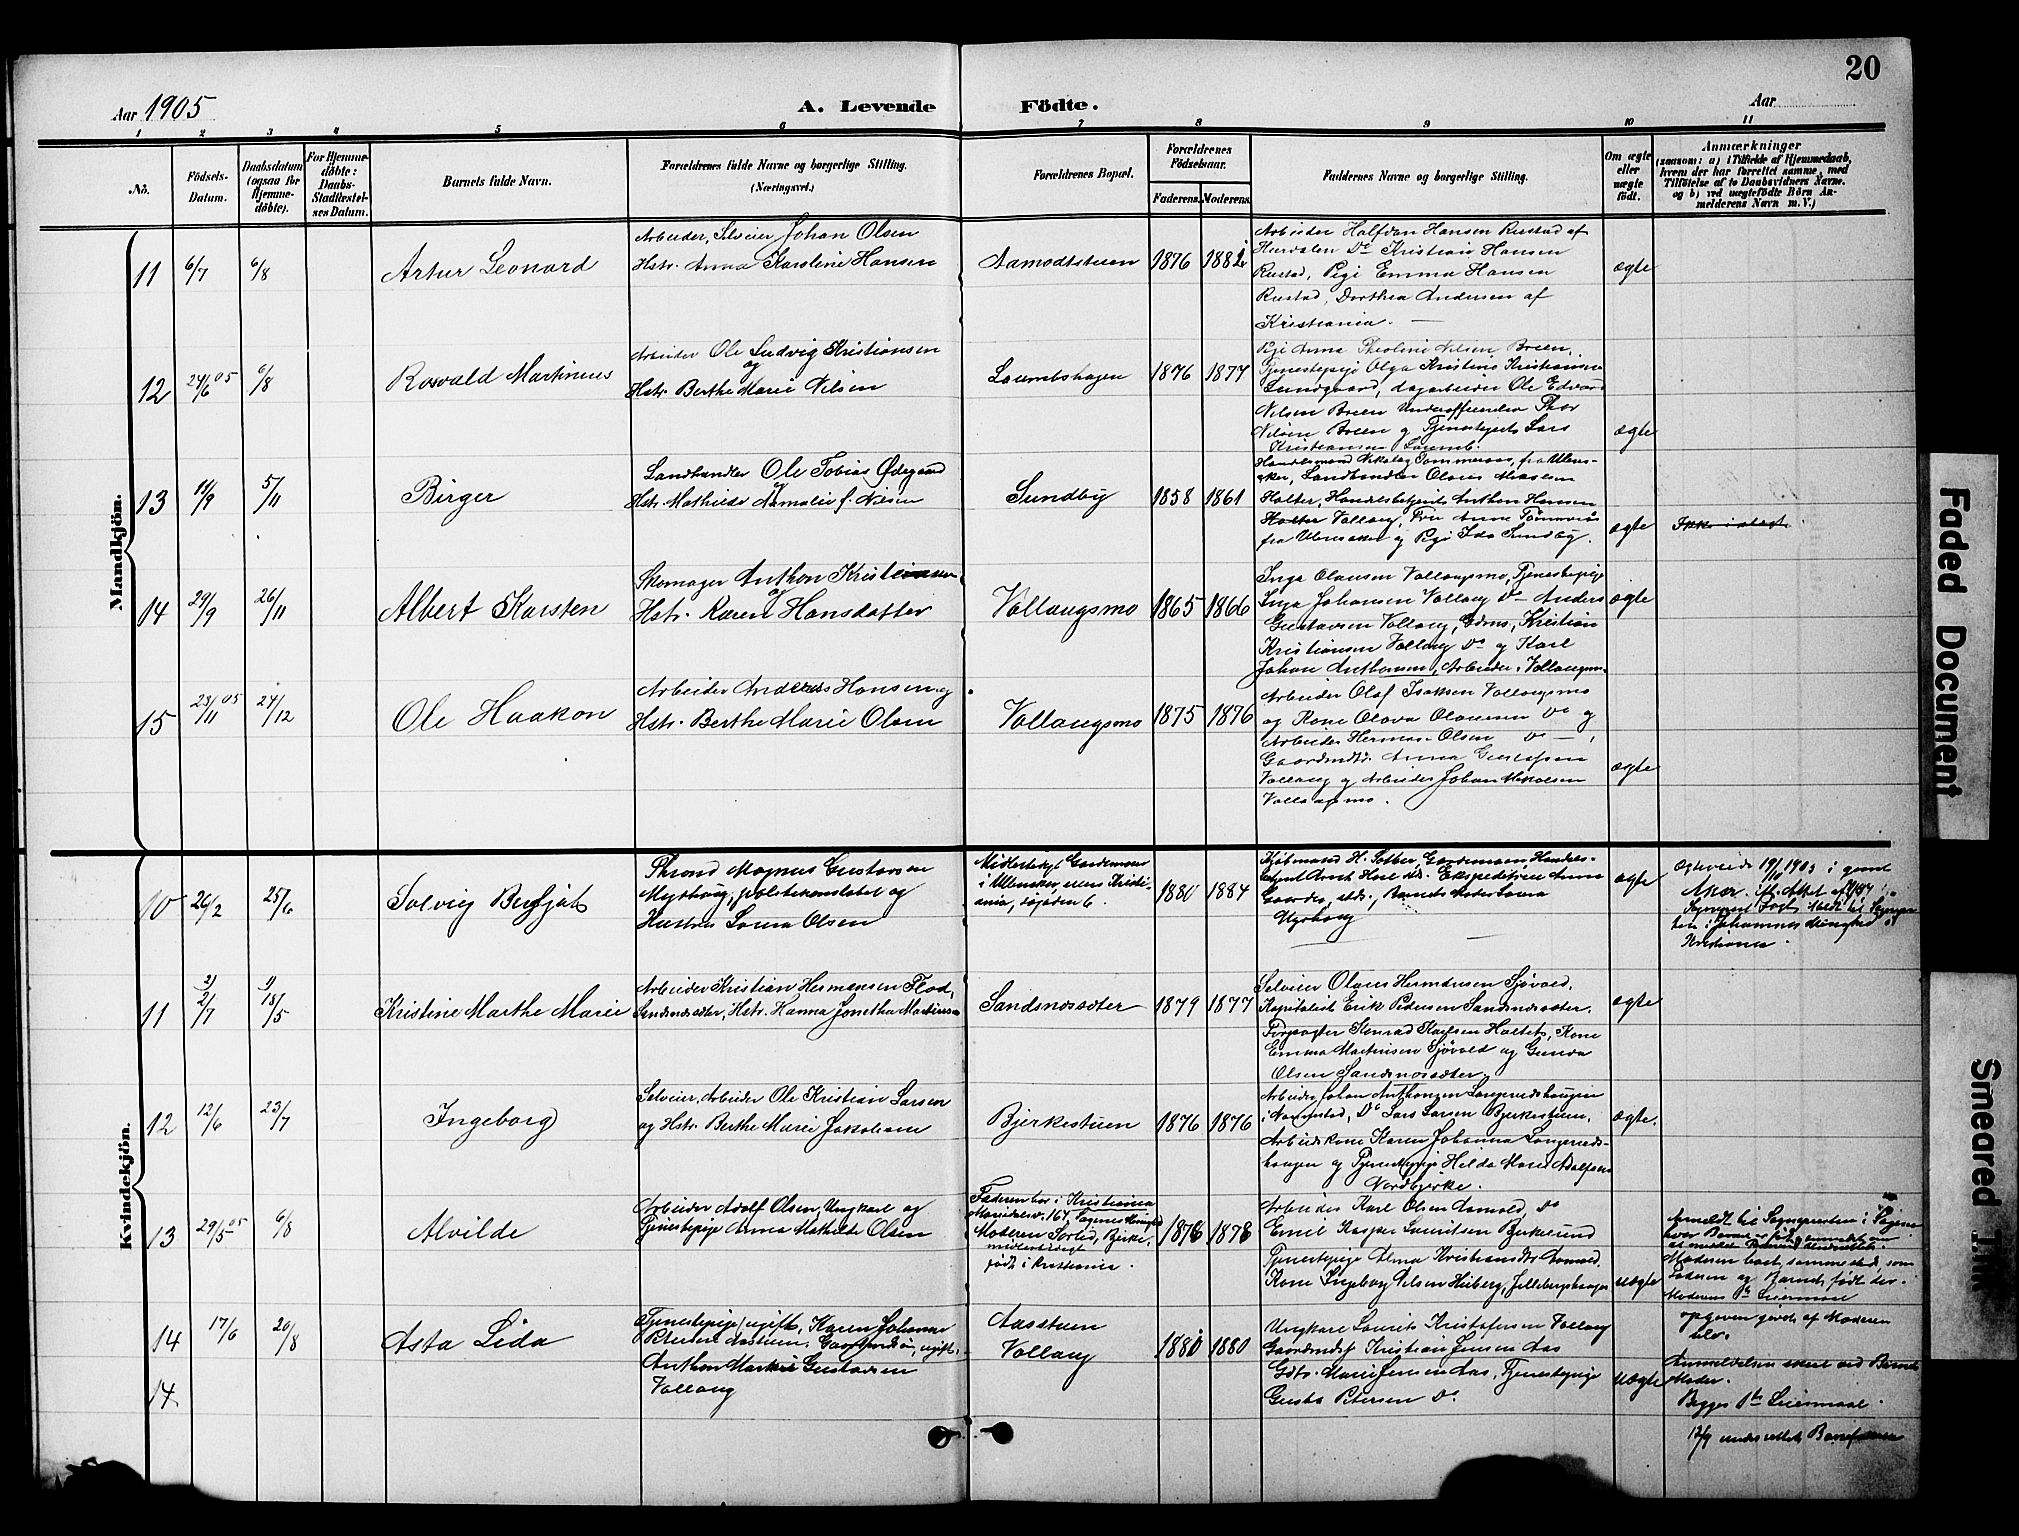 20
Aar 1905
A. Levende Födte.
Aar
1 2 3 4 5 6 7 8 9 10 11
No.
Födsels-Datum.
Daabsdatum (ogsaa for Hjemme-döbte).
For Hjemme-döbte: Daabs-Stadfæstel-ses Datum.
Barnets fulde Navn.
Forældrenes fulde Navne og borgerlige Stilling. (Næringsvei.)
Forældrenes Bopæl.
Forældrenes Födselsaar.
Faderens. Moderens.
Faddernes Navne og borgerlige Stilling.
Om ægte eller uægte födt.
Anmærkninger
(saasom: a) i Tilfælde af Hjemmedaab, hvem der har forrettet samme, med Tilföielse af to Daabsvidners Navne, og b) ved uægtefödte Börn An-melderens Navn m. V.)
Mandkjön.
11 6/7 6/8 Artur Leonard
Arbeider, Selveier Johan Olsen
Hstr. Anna Karoline Hansen
Aamodtstuen 1876 1882
Arbeider Halfdan Hansen Rustad af
Hurdalen Do Kristian Hansen
Rustad, Pige Emma Hansen
Rustad, Dorthea Andersen af
Kristiania. —
ægte
12 24/6 05 6/8 Roswald Martinius
Arbeider Ole Ludvig Kristiansen
og
Hstr. Berthe Marie Nilsen
1876 1877
Pige Anna Theoline Nilsen Breen,
Tjenestepige Olga Kristine Kristiansen
Lundgaard, dagarbeider Ole Edvard
Nilsen Breen Underofficerselev Thor
Nilsen Breen og Tjenestegut Lars
Kristiansen
ægte
13 11/9 5/11 Birger
Landhandler Ole Tobias Ødegaard
og
Hstr. Mathilde Amalie f. Nilsen
Sundby 1858 1861
Handelsmand Nikolay Tømmeraas, fra Ullens-
aker, Landhandler Olaus
Holter, Handelsbetjent Anthon Hansen
Holter Vollaug, Fru Anne Tømmeraas
fra Ullensaker og Pige Ida Sundby.
ægte
14 29/9 26/11 Albert Karsten
Skomager Anthon Kristiansen
og
Hstr. Karen Hansdatter
Vollaugsmo 1865 1866
Inga Olausen Vollaugsmo, Tjenestepige
Inga Johansen Vollaug Do — Anders
Gustavsen Vollaug, Gdms., Kristian
Kristiansen Vollaug Do og Karl
Johan Anthonsen, Arbeider, Vollaugsmo
ægte
15 23/11 05 24/12 Ole Haakon
Arbeider Anders Hansen og
Hstr. Berthe Marie Olsen
Vollaugsmo 1875 1876
Arbeider Olaf Isaksen Vollaugsmo
og Kone Olava Olausen Do og
Arbeider Herman Olsen Do — ,
Gaardmdtr. Anna Gustafsen
Vollaug og Arbeider Johan Mikalsen
Vollaugsmo.
ægte
Kvindekjön.
10 26/2 25/6 Solvig Bergljot
Thrond Magnus Gustavsen
Myrhaug, politikonstabel og
Hustru Laura Olsen
Midlertidigt Gardermoen
i Ullensaker, ellers Kristi-
ania,
1880 1884
Kjøbmand H. Sother, Gardermoen Handels-
Ekspeditrice Anna
Gaarder, Barnets Moder Laura
Myrhaug
ægte
Ægteviede 19/11 1903 i
Aker
Sogneprest
Johannes menighed
Kristiania.
11 2/7 18/5 Kristine Marthe Marie
Arbeider Kristian Hermansen Flad,
Sandsnessæter, Hstr. Hanna Jonetha Martinsen
Sandsnessæter 1879 1877
Selveier Olaus Hermansen Sjøvold,
Kapitalist Erik Pedersen Sandsnessæter,
Forpagter Konrad Karlsen Holtet, Kone
Emma Martinsen Sjøvold og Gunda
Olsen Sandsnessæter.
ægte
12 12/6 23/7 Ingeborg
Selveier, Arbeider Ole Kristian Larsen
og Hstr. Berthe Marie Jakobsen
Bjerkestuen 1876 1876
Arbeider Johan Anthonsen
i Nannestad, Do Lars Larsen Bjerkestuen,
Arbeidskone Karen Johanna
haugen og Tjenestepige Hilda Marie Adolfsen
Nordbjerke.
ægte.
13 29/5 05 6/8 Alvilde
Arbeider Adolf Olsen, Ungkarl og
Tjenestepige Anna Mathilde Olsen
Faderen bor i Kristiania
Maridalsv. 167, Sagenes Menighed
Moderen
midlertidigt
født i Kristiania.
1876 1878
Arbeider Karl Olsen Aamold, Do
Emil Kasper Lauritsen Bjerkelund
Tjenestepige Alma Kristiansdtr Aamold,
Kone Ingeborg Nilsen Huberg,
uægte
Anmeldt til Sognepresten i Sagene
hvor Barnet
Moderen bost. sammesteds, som
Faderen og Barnet født der.
Moderens 1ste Leiermaal
14 17/6 20/8 Asta Lida
Tjenestepige, ugift, Karen Johanne
Petersen Aastuen, Gaardmdsøn, ugift,
Anthon Markus Gustavsen
Vollaug
Aasstuen
Vollaug
1880 1880
Ungkarl Laurits Kristofersen Vollaug
Gaardmds. Kristian Jensen Aas
Gdtr. Marie Jensen Aas, Tjenestepige
Gusta Petersen Do
uægte
opgiven gjords af Moderen
selv.
Anmeldelsen skeet ved Barnets
Moder.
Begges 1ste Leiermaal.
12/9 underrettet Barnefaderen
14
Faded Document
Smeared Ink